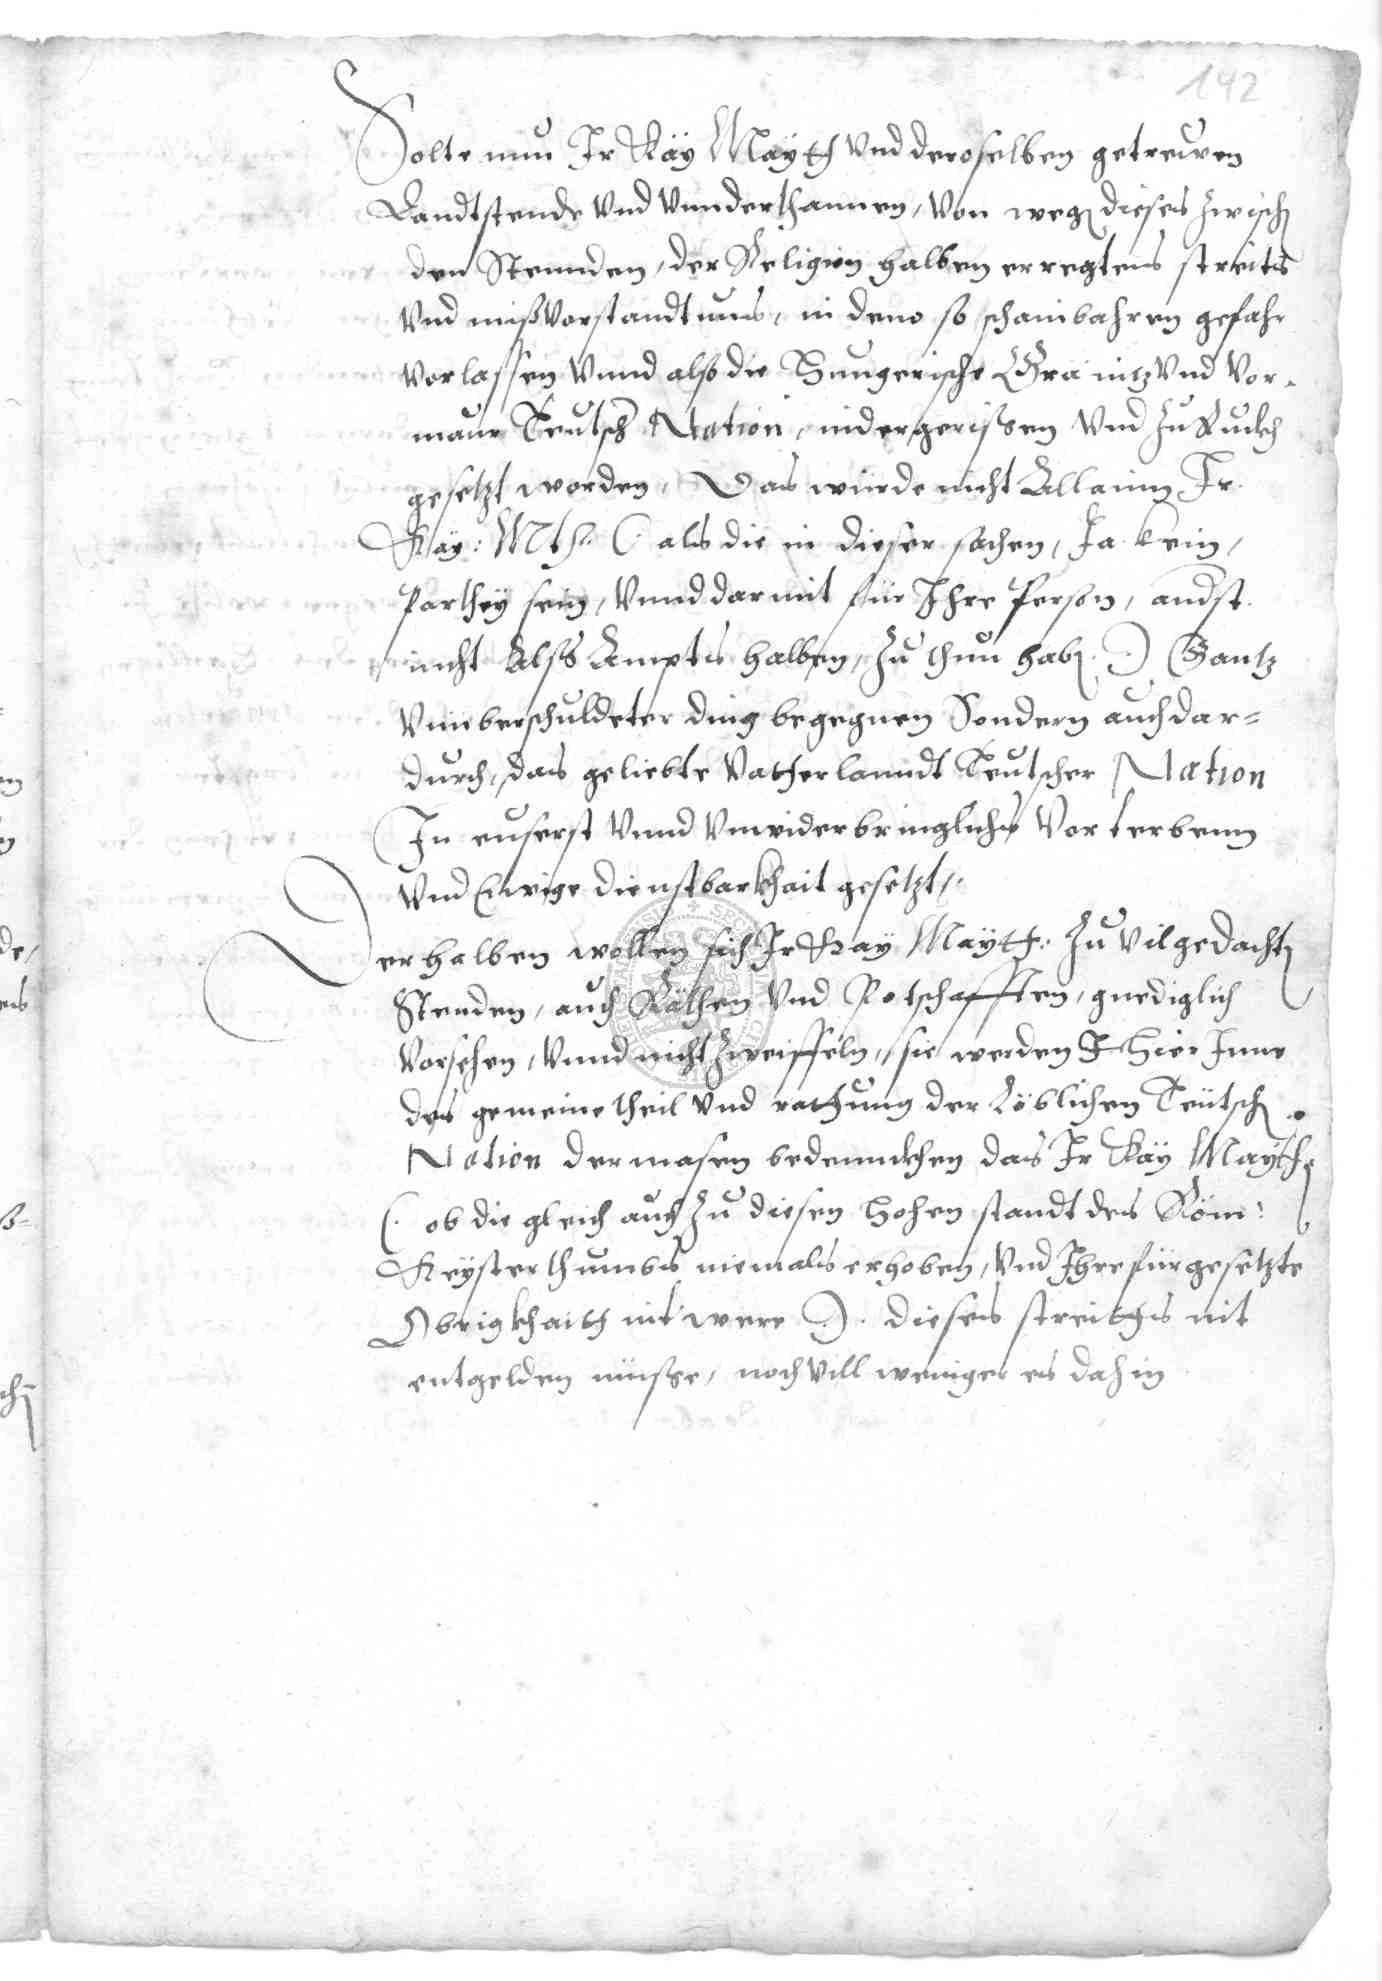 142
Solte nun Ir Kay Maytt vnd deroselben getrewen
Landtstende vnd vnnderthannen, von wegen dieses zwischen
den Stennden, der Religion halben erregtens streits
vnd mißvorstandtnus, in deno so scheinbahren gefahr
vorlassen vnnd also die Hungerische Gränitz vnd Vor-
maur Teutscher Nation, nidergerissen vnd zu Ruckh
gesetzt worden, Das würde nicht Allainn Ir
Kay: Mth: (: als die in dieser sachen, Ja kein,
Parthey sein, vnnd darmit für Ihre Person, anderst
nicht Alß Ampts halben, zu thun haben :) Gantz
vnuerschuldeter ding begegnen Sondern auch dar=
durch, das geliebte Vatherlanndt Teutscher Nation
In euserst vnnd vnwiderbringlichs Vorterbenn
vnd Ewige dienstbarkhait gesetzt,
Derhalben wollen sich Ir Kay Maytt: zu vilgedachten
Stenden, auch Räthen vnd Potschafften, gnediglich
vorsehen, vnnd nicht zweiffeln, sie werden hier Inne
des gemeine theil vnd rathung der Löblichen Teütschen
Nation dermasen bedennckhen das Ir Kay Maytt
(: ob die gleich auch zu diesen hohen standt des Röm:
Keysterthumbs niemals erhoben, vnd Ihre fürgesetzte
Obrigkhaith nit were :) dieses streithes nit
entgelden müsse, noch vill weniger es dahin